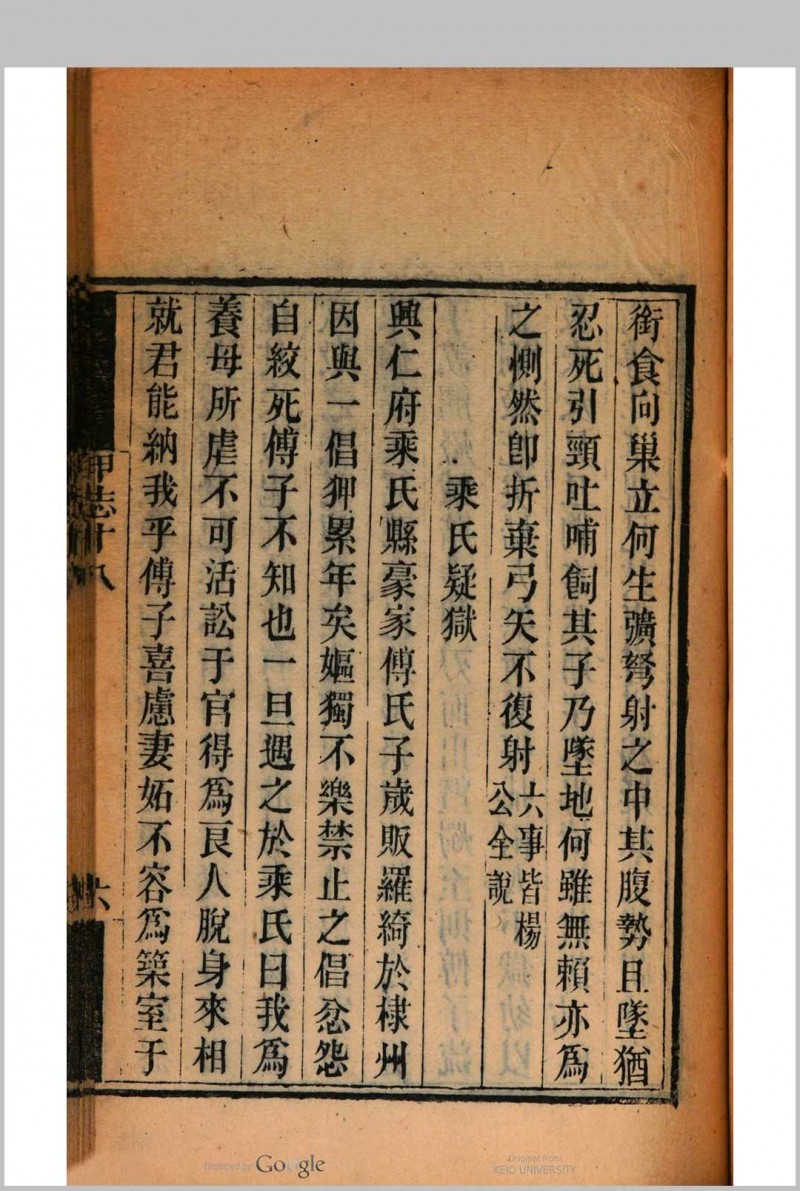 銜食向巢立何生彍弩射之中其腹勢且墜猶
忍死引頸吐哺飼其子乃墜地何雖無賴亦為
之惻然卽折棄弓矢不復射六事皆楊公全說
乘氏疑獄
興仁府乘氏縣豪家傅氏子歲販羅綺於棣州
因與一倡狎累年矣嫗獨不樂禁止之倡忿怨
自絞死傅子不知也一旦遇之於乘氏曰我為
養母所虐不可活訟于官得為良人脫身來相
就君能納我乎傅子喜慮妻妬不容為築室于
甲志十八
六
Digitized by Google
Original from
KEIO UNIVERSITY